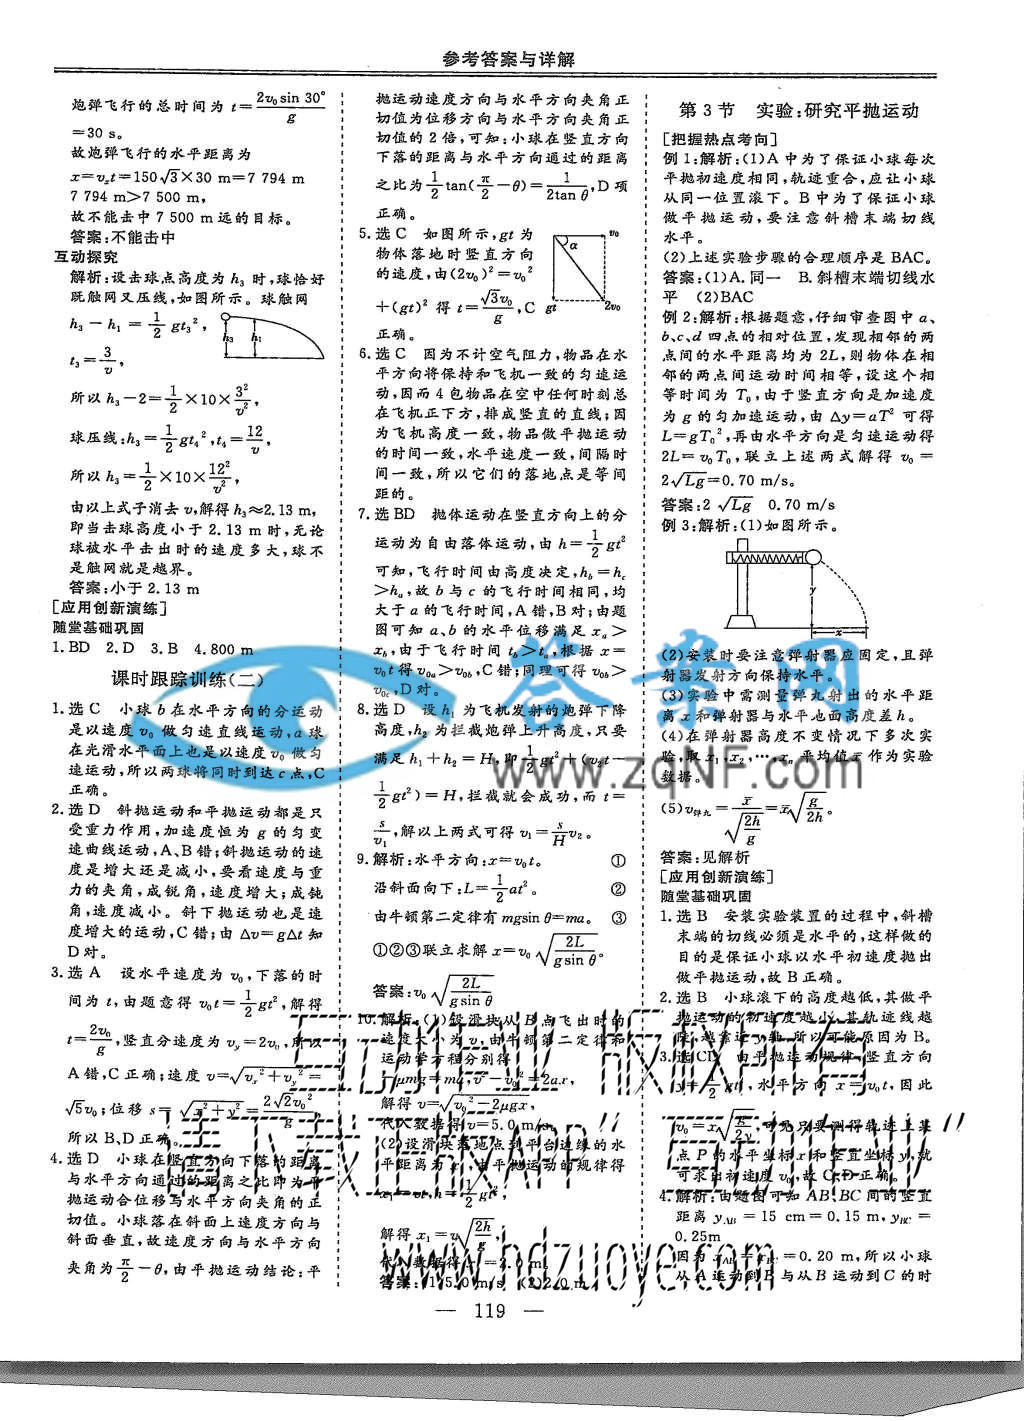 参考答案与详解
炮弹飞行的总时间为 t=2v₀sin 30°/g
=30 s。
故炮弹飞行的水平距离为
x=vₓt=150√3×30 m=7 794 m
7 794 m>7 500 m,
故不能击中 7 500 m 远的目标。
答案:不能击中
互动探究
解析:设击球点高度为 h₃ 时,球恰好
既触网又压线,如图所示。球触网
h₃-h₁=1/2 gt₃²,
t₃=3/v,
h₃ h₁
所以 h₃-2=1/2×10×3²/v²,
球压线:h₃=1/2 gt₄²,t₄=12/v,
所以 h₃=1/2×10×12²/v²,
由以上式子消去 v,解得 h₃≈2.13 m,
即当击球高度小于 2.13 m 时,无论
球被水平击出时的速度多大,球不
是触网就是越界。
答案:小于 2.13 m
[应用创新演练]
随堂基础巩固
1.BD 2.D 3.B 4.800 m
课时跟踪训练(二)
1.选 C 小球 b 在水平方向的分运动
是以速度 v₀ 做匀速直线运动,a 球
在光滑水平面上也是以速度 v₀ 做匀
速运动,所以两球将同时到达 c 点,C
正确。
2.选 D 斜抛运动和平抛运动都是只
受重力作用,加速度恒为 g 的匀变
速曲线运动,A、B 错;斜抛运动的速
度是增大还是减小,要看速度与重
力的夹角,成锐角,速度增大;成钝
角,速度减小。斜下抛运动也是速
度增大的运动,C 错;由 Δv=gΔt 知
D 对。
3.选 A 设水平速度为 v₀,下落的时
间为 t,由题意得 v₀t=1/2 gt²,解得
t=2v₀/g,竖直分速度为 vᵧ=2v₀,所以
A 错,C 正确;速度 v=√(vₓ²+vᵧ²)=
√5v₀;位移 s=√(x²+y²)=2√2v₀²/g,
所以 B、D 正确。
4.选 D 小球在竖直方向下落的距离
与水平方向通过的距离之比即为平
抛运动合位移与水平方向夹角的正
切值。小球落在斜面上速度方向与
斜面垂直,故速度方向与水平方向
夹角为 π/2-θ,由平抛运动结论:平
抛运动速度方向与水平方向夹角正
切值为位移方向与水平方向夹角正
切值的 2 倍,可知:小球在竖直方向
下落的距离与水平方向通过的距离
之比为 1/2 tan(π/2-θ)=1/(2tan θ),D 项
正确。
5.选 C 如图所示,gt 为
物体落地时竖直方向
的速度,由(2v₀)²=v₀²
+(gt)² 得 t=√3v₀/g,C
正确。
v₀
α
gt 2v₀
6.选 C 因为不计空气阻力,物品在水
平方向将保持和飞机一致的匀速运
动,因而 4 包物品在空中任何时刻总
在飞机正下方,排成竖直的直线;因
为飞机高度一致,物品做平抛运动
的时间一致,水平速度一致,间隔时
间一致,所以它们的落地点是等间
距的。
7.选 BD 抛体运动在竖直方向上的分
运动为自由落体运动,由 h=1/2 gt²
可知,飞行时间由高度决定,h_b=h_c
>h_a,故 b 与 c 的飞行时间相同,均
大于 a 的飞行时间,A 错,B 对;由题
图可知 a、b 的水平位移满足 x_a>
x_b,由于飞行时间 t_b>t_a,根据 x=
v₀t 得 v₀ₐ>v₀b,C 错;同理可得 v₀b>
v₀c,D 对。
8.选 D 设 h₁ 为飞机发射的炮弹下降
高度,h₂ 为拦截炮弹上升高度,只要
满足 h₁+h₂=H,即 1/2 gt²+(v₂t-
1/2 gt²)=H,拦截就会成功,而 t=
s/v₁,解以上两式可得 v₁=s/H v₂。
9.解析:水平方向:x=v₀t。 ①
沿斜面向下:L=1/2 at²。 ②
由牛顿第二定律有 mgsin θ=ma。 ③
①②③联立求解 x=v₀√(2L/(gsin θ))。
答案:v₀√(2L/(gsin θ))
10.解析:(1)设滑块从 B 点飞出时的
速度大小为 v,由牛顿第二定律和
运动学方程分别得
-μmg=ma,v²-v₀²=2ax,
解得 v=√(v₀²-2μgx),
代入数据得 v=5.0 m/s。
(2)设滑块落地点到平台边缘的水
平距离为 x₁,由平抛运动的规律得
x₁=vt,h=1/2 gt²,
解得 x₁=v√(2h/g),
代入数据得 x₁=2.0 m。
答案:(1)5.0 m/s (2)2.0 m
第 3 节 实验:研究平抛运动
[把握热点考向]
例 1:解析:(1)A 中为了保证小球每次
平抛初速度相同,轨迹重合,应让小球
从同一位置滚下。B 中为了保证小球
做平抛运动,要注意斜槽末端切线
水平。
(2)上述实验步骤的合理顺序是 BAC。
答案:(1)A.同一 B.斜槽末端切线水
平 (2)BAC
例 2:解析:根据题意,仔细审查图中 a、
b、c、d 四点的相对位置,发现相邻的两
点间的水平距离均为 2L,则物体在相
邻的两点间运动时间相等,设这个相
等时间为 T₀,由于竖直方向是加速度
为 g 的匀加速运动,由 Δy=aT² 可得
L=gT₀²,再由水平方向是匀速运动得
2L=v₀T₀,联立上述两式解得 v₀=
2√(Lg)=0.70 m/s。
答案:2√(Lg) 0.70 m/s
例 3:解析:(1)如图所示。
y
x
(2)安装时要注意弹射器应固定,且弹
射器发射方向保持水平。
(3)实验中需测量弹丸射出的水平距
离 x 和弹射器与水平地面高度差 h。
(4)在弹射器高度不变情况下多次实
验,取 x₁,x₂,…,xₙ 平均值 x̄ 作为实验
数据。
(5)v弹丸=x̄/√(2h/g)=x̄√(g/2h)。
答案:见解析
[应用创新演练]
随堂基础巩固
1.选 B 安装实验装置的过程中,斜槽
末端的切线必须是水平的,这样做的
目的是保证小球以水平初速度抛出
做平抛运动,故 B 正确。
2.选 B 小球滚下的高度越低,其做平
抛运动的初速度越小,其轨迹线越
陡,越靠近 y 轴,所以可能原因为 B。
3.选 CD 由平抛运动规律,竖直方向
y=1/2 gt²,水平方向 x=v₀t,因此
v₀=x√(g/2y),可见只要测得轨迹上某
点 P 的水平坐标 x 和竖直坐标 y,就
可求出初速度 v₀,故 C、D 正确。
4.解析:由题图可知 AB、BC 间的竖直
距离 y_AB=15 cm=0.15 m,y_BC=
0.25m
因为 x_AB=x_BC=0.20 m,所以小球
从 A 运动到 B 与从 B 运动到 C 的时
— 119 —
答案网
www.zqNF.com
互动作业 版权所有
请下载正版APP“互动作业”
www.hdzuoye.com